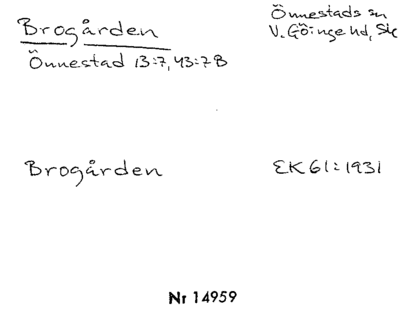 Brogården
Önnestad 13:7, 43:7B
Önnestads sn
V. Göinge hd, Sk
Brogården
EK 61:1931
Nr 14959